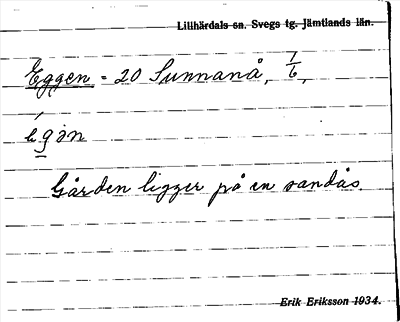 Lillhärdals sn. Svegs tg. Jämtlands län.
Eggen = 20 Sunnanå, 1/6,
Gården ligger på en sandås.
Erik Eriksson 1934.